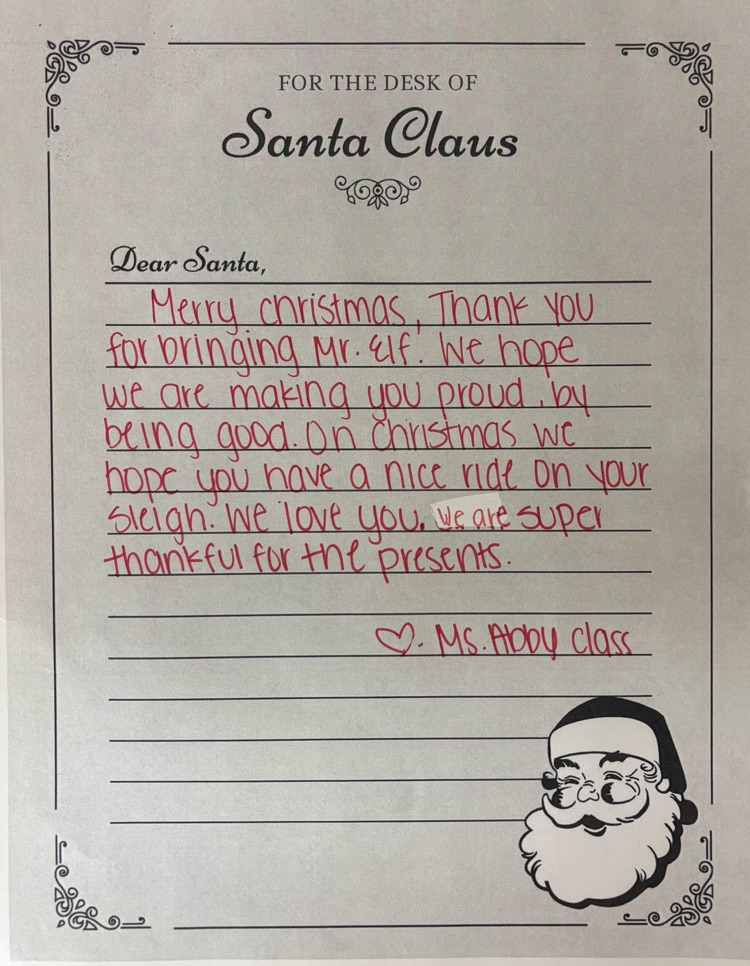 FOR THE DESK OF
Santa Claus
Dear Santa,
Merry christmas, Thank you
for bringing Mr. Elf. We hope
we are making you proud, by
being good. On christmas we
hope you have a nice ride on your
sleigh. We love you. We are super
thankful for the presents.
♡. Ms. Abby class